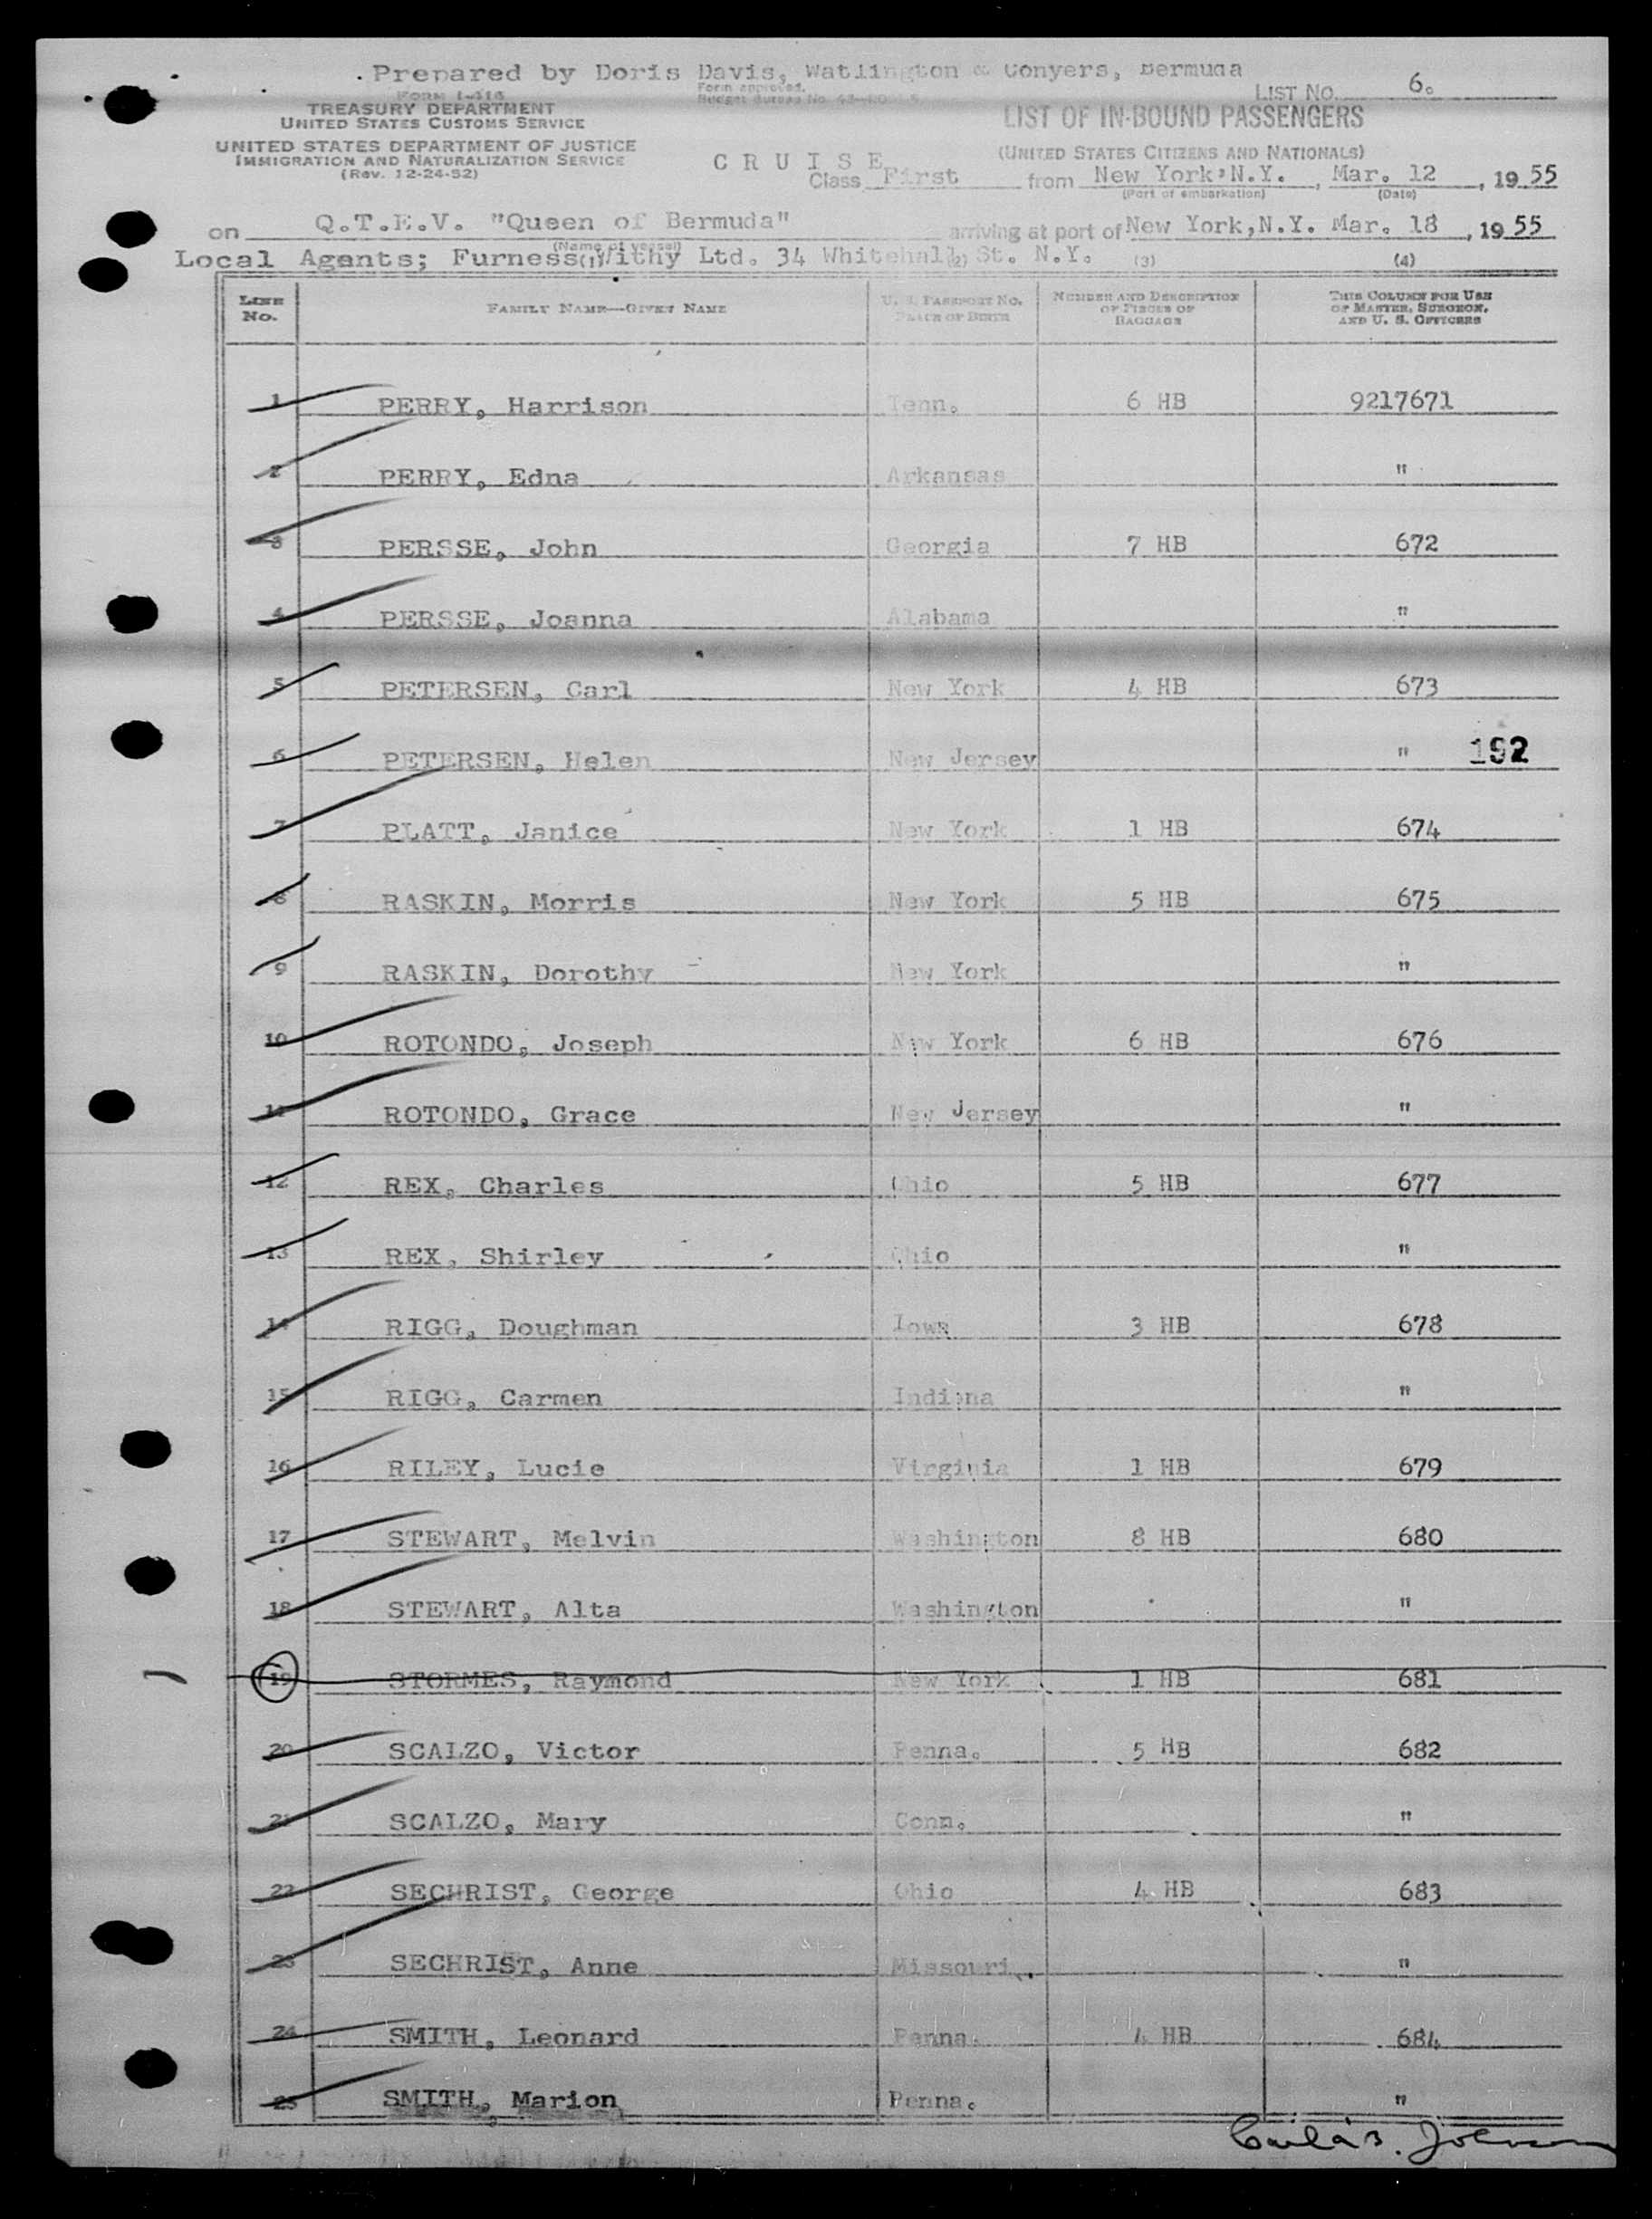 Prepared by Doris Davis, Watlington & Conyers, Bermuda
FORM I-416
Form approved.
LIST No. 6.
TREASURY DEPARTMENT
UNITED STATES CUSTOMS SERVICE
LIST OF IN-BOUND PASSENGERS
UNITED STATES DEPARTMENT OF JUSTICE
IMMIGRATION AND NATURALIZATION SERVICE
(Rev. 12-24-52)
(UNITED STATES CITIZENS AND NATIONALS)
C R U I S E
Class First from New York, N.Y. , Mar. 12 , 1955
(Port of embarkation) (Date)
on Q.T.E.V. "Queen of Bermuda" arriving at port of New York, N.Y. Mar. 18 , 1955
(Name of vessel)
Local Agents; Furness Withy Ltd. 34 Whitehall St. N.Y.
(1) (2) (3) (4)
LINE No. FAMILY NAME—GIVEN NAME U. S. PASSPORT No. PLACE OF BIRTH NUMBER AND DESCRIPTION OF PIECES OF BAGGAGE THIS COLUMN FOR USE OF MASTER, SURGEON, AND U. S. OFFICERS
1 PERRY, Harrison Tenn. 6 HB 9217671
2 PERRY, Edna Arkansas "
3 PERSSE, John Georgia 7 HB 672
4 PERSSE, Joanna Alabama "
5 PETERSEN, Carl New York 4 HB 673
6 PETERSEN, Helen New Jersey " 192
7 PLATT, Janice New York 1 HB 674
8 RASKIN, Morris New York 5 HB 675
9 RASKIN, Dorothy New York "
10 ROTONDO, Joseph New York 6 HB 676
11 ROTONDO, Grace New Jersey "
12 REX, Charles Ohio 5 HB 677
13 REX, Shirley Ohio "
14 RIGG, Doughman Iowa 3 HB 678
15 RIGG, Carmen Indiana "
16 RILEY, Lucie Virginia 1 HB 679
17 STEWART, Melvin Washington 8 HB 680
18 STEWART, Alta Washington "
19 STORMES, Raymond New York 1 HB 681
20 SCALZO, Victor Penna. 5 HB 682
21 SCALZO, Mary Conn. "
22 SECHRIST, George Ohio 4 HB 683
23 SECHRIST, Anne Missouri "
24 SMITH, Leonard Penna. 4 HB 684
25 SMITH, Marion Penna. "